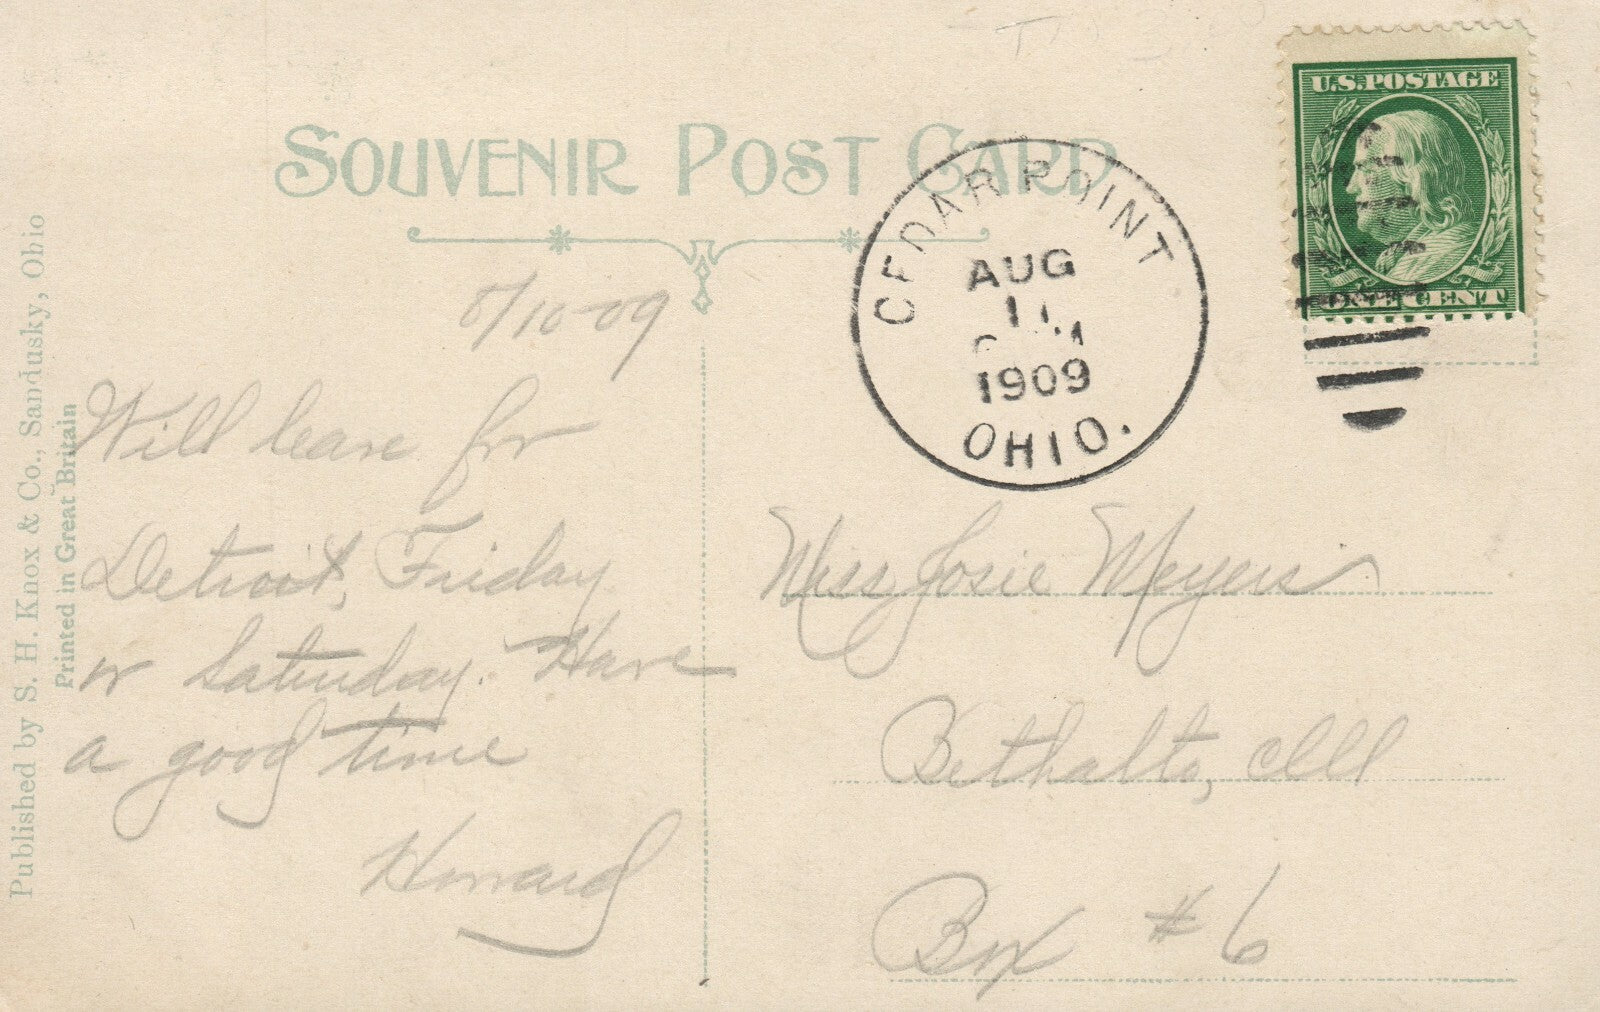 SOUVENIR POST CARD
U.S. POSTAGE
ONE CENT
CEDAR POINT
AUG
11
1909
OHIO.
Published by S. H. Knox & Co., Sandusky, Ohio
Printed in Great Britain
8/10-09
Will leave for
Detroit, Friday
or Saturday. Have
a good time
Howard
Miss Josie Meyers
Bethalto, Ill
Box #6